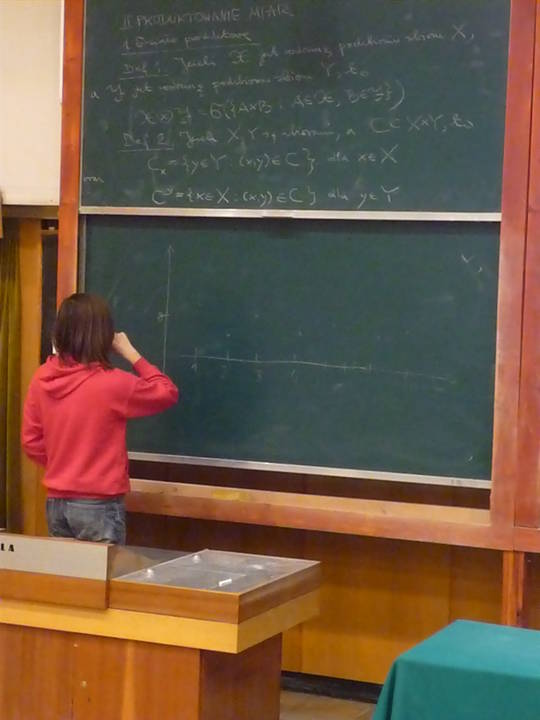 II PRODUKTOWANIE MIAR
1. podstawowe
Def 1. Jeżeli X jest rodziną podzbiorów zbioru X,
a Y jest rodziną podzbiorów zbioru Y, to
X(×)Y = σ({A×B : A∈X, B∈Y})
Def 2. Jeżeli X, Y są zbiorami, a C⊂X×Y, to
Cₓ = {y∈Y : (x,y)∈C}, dla x∈X
oraz
Cʸ = {x∈X : (x,y)∈C} dla y∈Y
1 2 3
LA